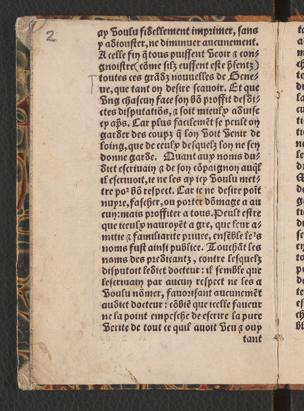 2
ay voulu fidellement imprimer, sans
y adiouster, ne diminuer aucunement.
A celle fin q̃ tous puissent veoir ⁊ con-
gnoistre (cõme silz eussent este p̃sentz)
toutes ces grãdz nouuelles de Gene-
ue, que tant on desire scauoir. Et que
vng chascun face son bõ proffit desdi-
ctes disputatiõs, ⁊ soit mieulx aduise
cy aps̃. Car plus facilemẽt se peult on
garder des coupz q̃ lon voit venir de
loing, que de ceulx desquelz lon ne sen
donne garde. Quant aux noms du-
dit escriuain ⁊ de son cõpaignon auql̃
il escriuoit, ie ne les ay icy voulu met-
tre po² bõ respect. Car ie ne desire poit
nuyre, fascher, ou porter dõmage a au
cun: mais proffiter a tous. Peult estre
que iceulx nauroyẽt a gre, que leur a-
mitie ⁊ familiarite priuee, ensẽble le²s
noms fust ainsi publiee. Touchãt les
noms des predicantz, contre lesquelz
disputoit ledict docteur: il semble que
lescriuain par aucun respect ne les a
voulu nõmer, fauorisant aucunemẽt
audict docteur: cõbiẽ que icelle faueur
ne la point empesche de escrire la pure
verite de tout ce quil auoit veu ⁊ ouy
tant